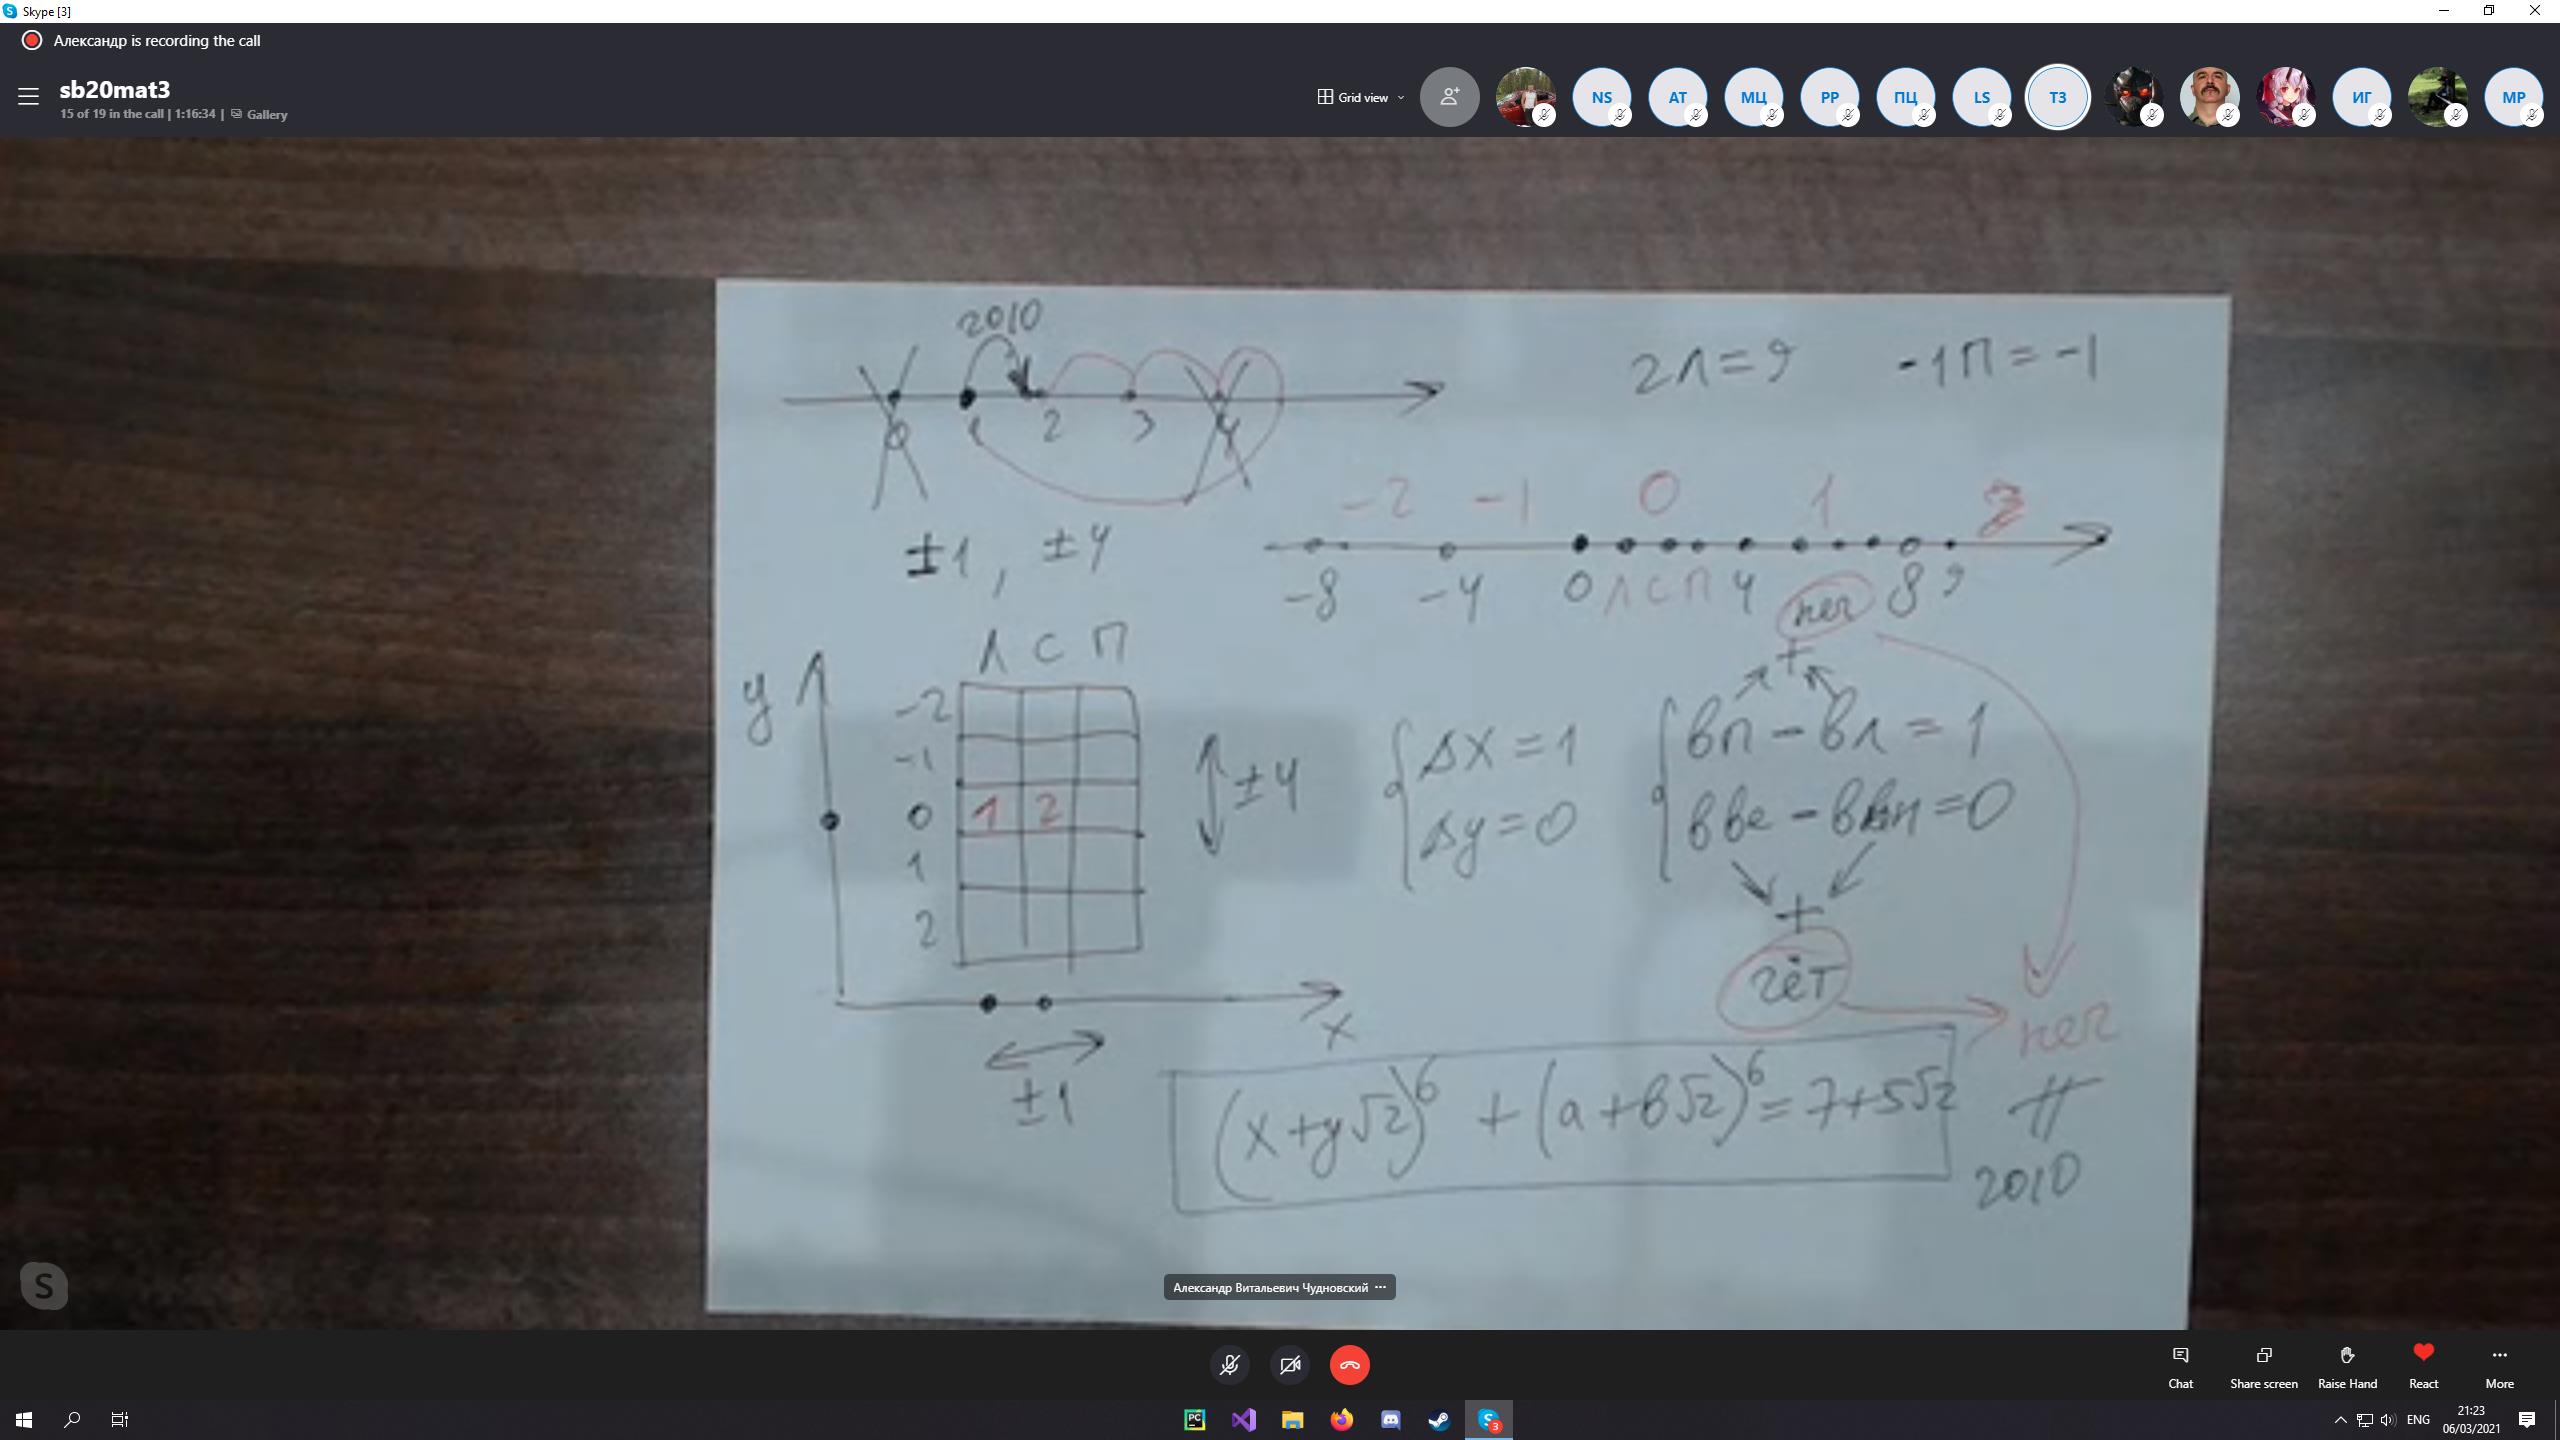 Skype [3]
Александр is recording the call
sb20mat3
15 of 19 in the call | 1:16:34 | Gallery
Grid view
NS
AT
МЦ
PP
ПЦ
LS
ТЗ
ИГ
MP
2010
0 1 2 3 4
±1, ±4
2Л=9 -1П=-1
-2 -1 0 1 2
-8 -4 0 Л С П 4 8 9
неч
+
Л С П
y
-2
-1
0 1 2
1
2
±4
x
±1
Δx=1
Δy=0
вп-вл=1
вве-ввн=0
+
чёт
неч
2010
(x+y√2)⁶+(a+b√2)⁶=7+5√2
Александр Витальевич Чудновский ...
S
Chat
Share screen
Raise Hand
React
More
PC
S
3
ENG
21:23
06/03/2021